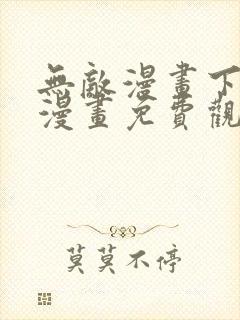 無敵漫畫下
漫畫免費觀
莫莫不停